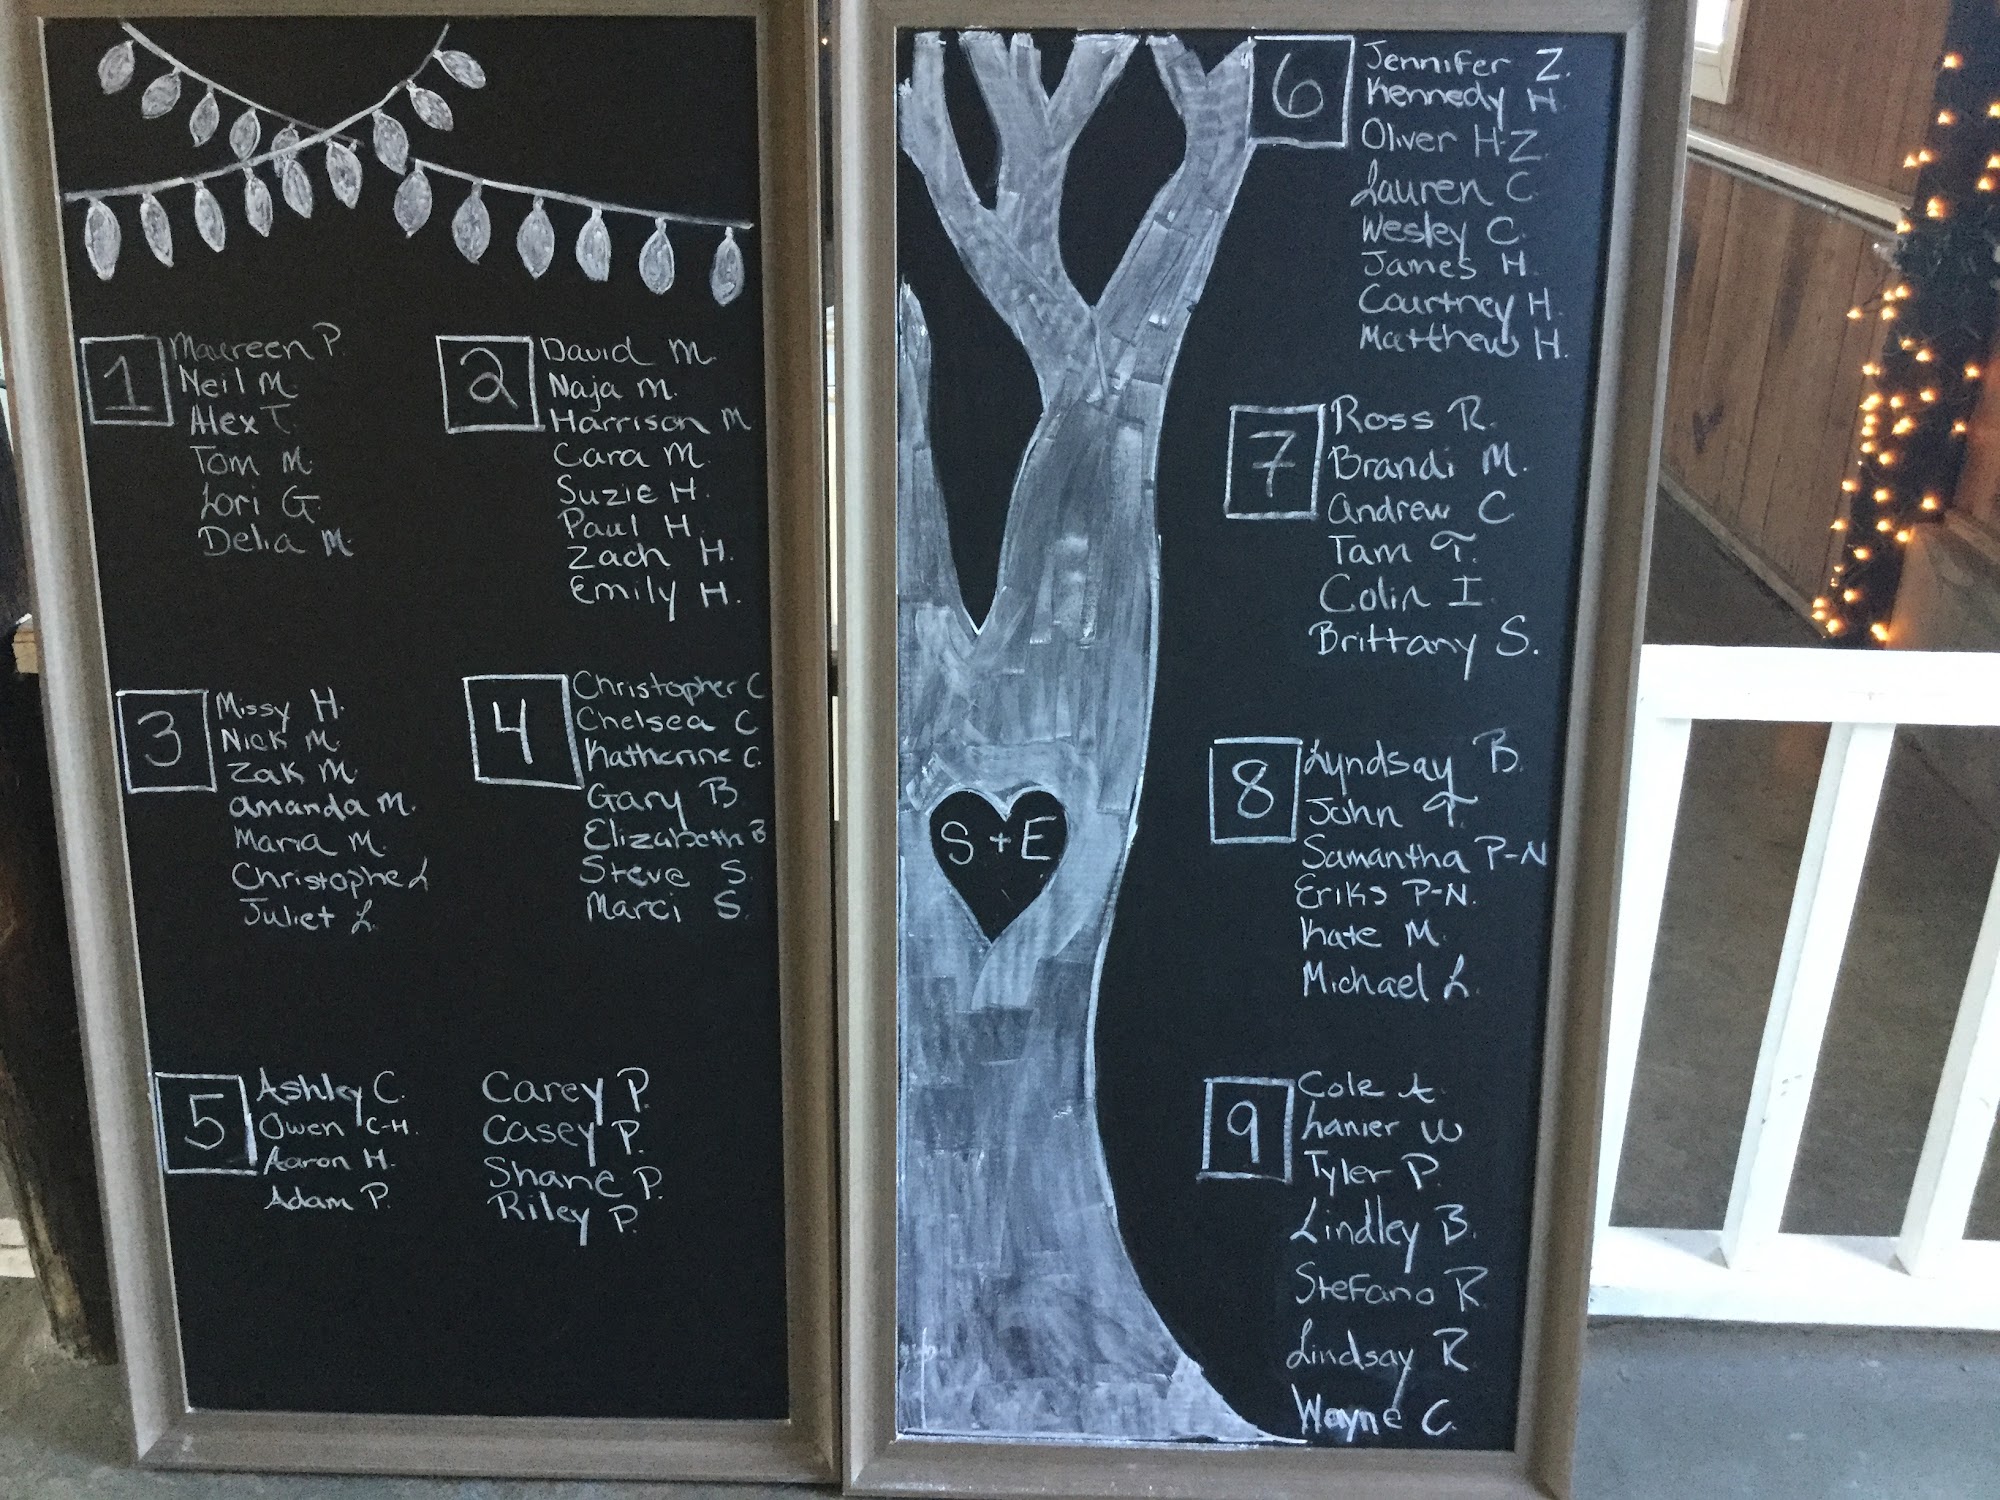 1
Maureen P.
Neil M.
Alex T.
Tom M.
Lori G.
Delia M.
2
David M.
Naja M.
Harrison M
Cara M.
Suzie H.
Paul H.
Zach H.
Emily H.
3
Missy H.
Nick M.
Zak M.
Amanda M.
Maria M.
Christophe L
Juliet L.
4
Christopher C
Chelsea C
Katherine C.
Gary B.
Elizabeth B
Steve S.
Marci S.
5
Ashley C.
Owen C-H.
Aaron H.
Adam P.
Carey P.
Casey P.
Shane P.
Riley P.
S + E
6
Jennifer Z.
Kennedy H.
Oliver H-Z.
Lauren C.
Wesley C.
James H.
Courtney H.
Matthew H.
7
Ross R.
Brandi M.
Andrew C.
Tam T.
Colin I.
Brittany S.
8
Lyndsay B.
John T.
Samantha P-N
Eriks P-N.
Kate M.
Michael L.
9
Cole A.
Lanier W
Tyler P.
Lindley B.
Stefano R.
Lindsay R
Wayne C.